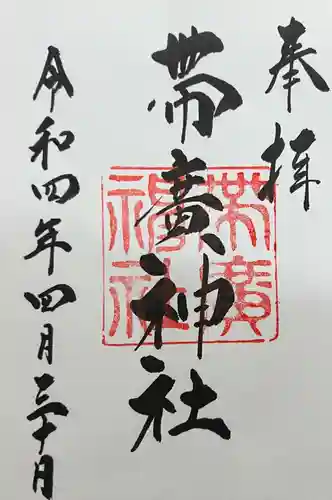 奉拝
帯廣神社
帯廣神社
令和四年四月三十月